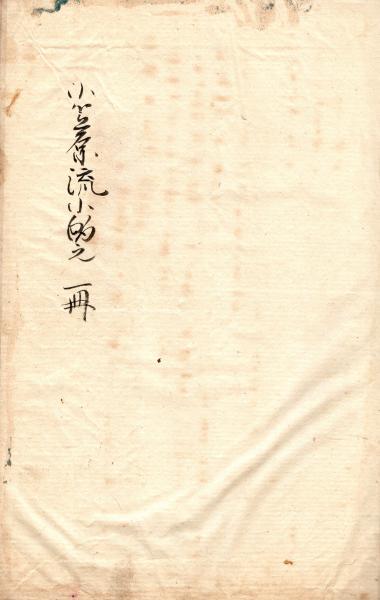 小笠原流小的之 一冊